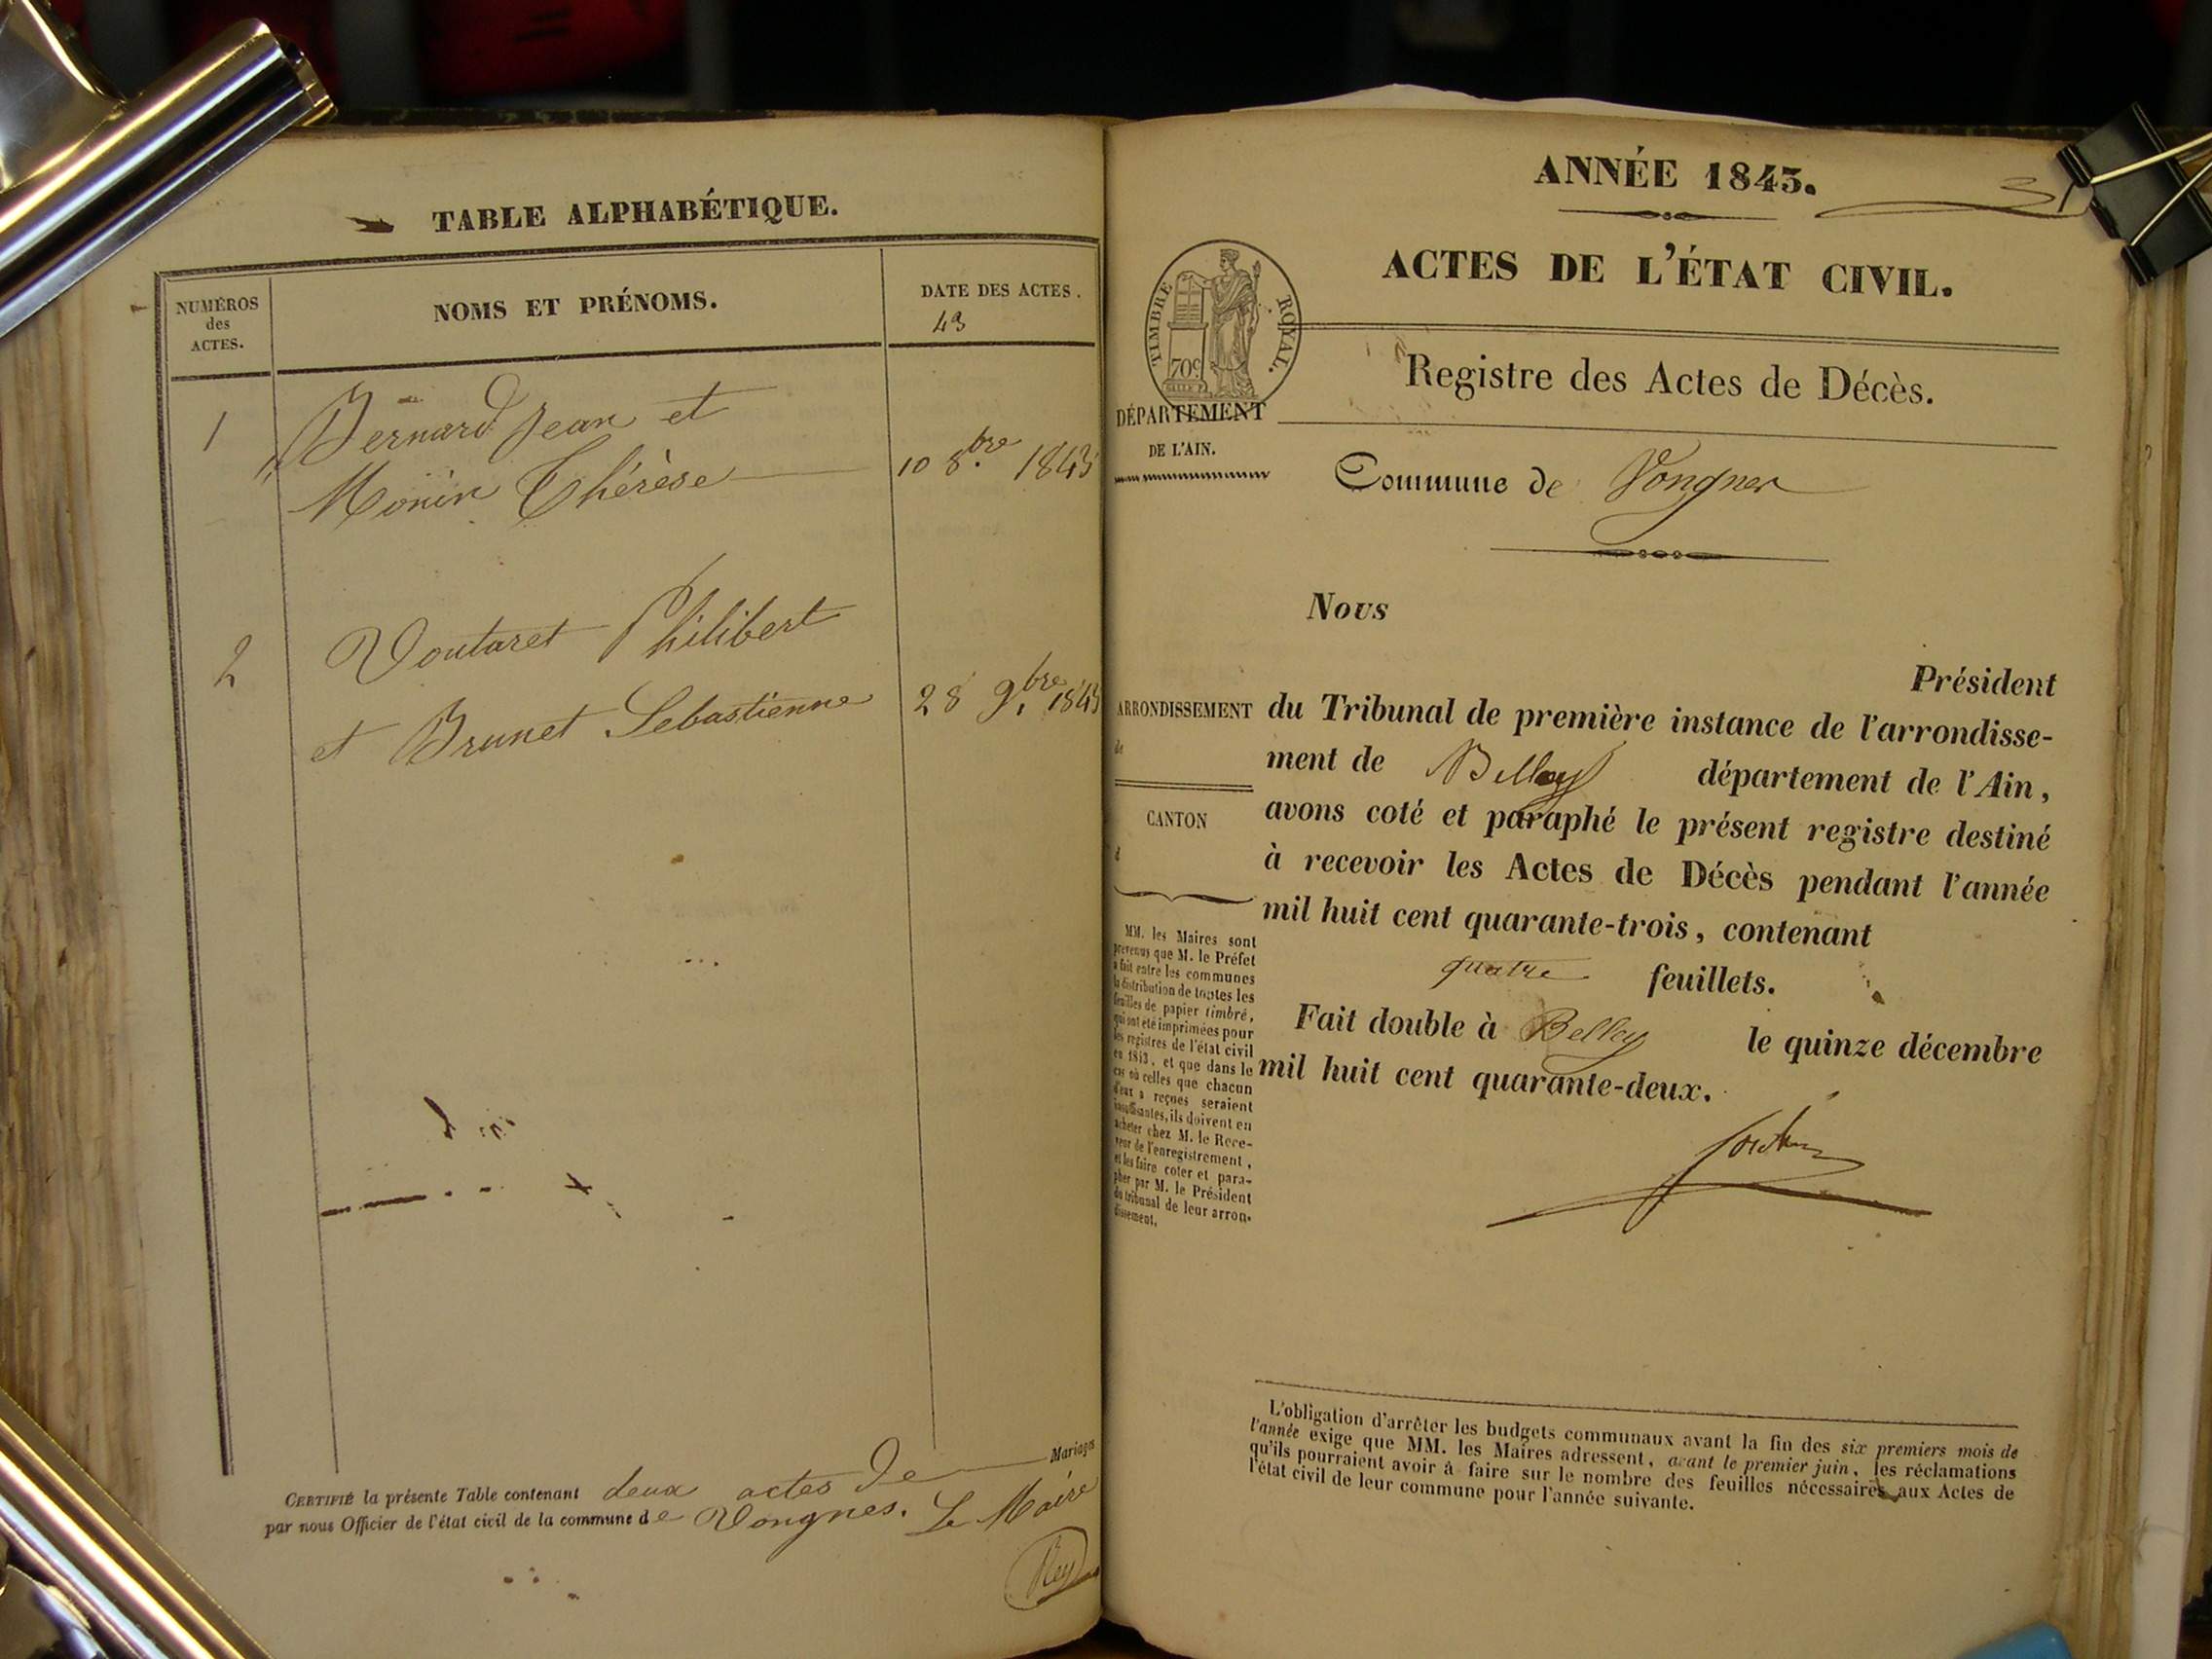 TABLE ALPHABÉTIQUE.
NUMÉROS
des
ACTES.
NOMS ET PRÉNOMS.
DATE DES ACTES.
43
1
Bernard Jean et
Monin Thérèse
10 8.bre 1843
2
Voutaret Philibert
et Brunet Sebastienne
28 9.bre 1843
CERTIFIÉ la présente Table contenant deux actes de Mariages
par nous Officier de l'état civil de la commune de Vongnes. Le Maire
Rey
ANNÉE 1843.
ACTES DE L'ÉTAT CIVIL.
TIMBRE ROYAL.
70c
Registre des Actes de Décès.
DÉPARTEMENT
DE L'AIN.
Commune de Vongnes
Nous
Président
ARRONDISSEMENT
de
CANTON
d
du Tribunal de première instance de l'arrondisse-
ment de Belley département de l'Ain,
avons coté et paraphé le présent registre destiné
à recevoir les Actes de Décès pendant l'année
mil huit cent quarante-trois, contenant
quatre feuillets.
Fait double à Belley le quinze décembre
mil huit cent quarante-deux.
MM. les Maires sont
prévenus que M. le Préfet
a fait entre les communes
la distribution de toutes les
feuilles de papier timbré,
qui ont été imprimées pour
les registres de l'état civil
en 1843, et que dans le
cas où celles que chacun
d'eux a reçues seraient
insuffisantes, ils doivent en
acheter chez M. le Rece-
veur de l'enregistrement,
et les faire coter et para-
pher par M. le Président
du tribunal de leur arron-
dissement.
L'obligation d'arrêter les budgets communaux avant la fin des six premiers mois de
l'année exige que MM. les Maires adressent, avant le premier juin, les réclamations
qu'ils pourraient avoir à faire sur le nombre des feuilles nécessaires aux Actes de
l'état civil de leur commune pour l'année suivante.